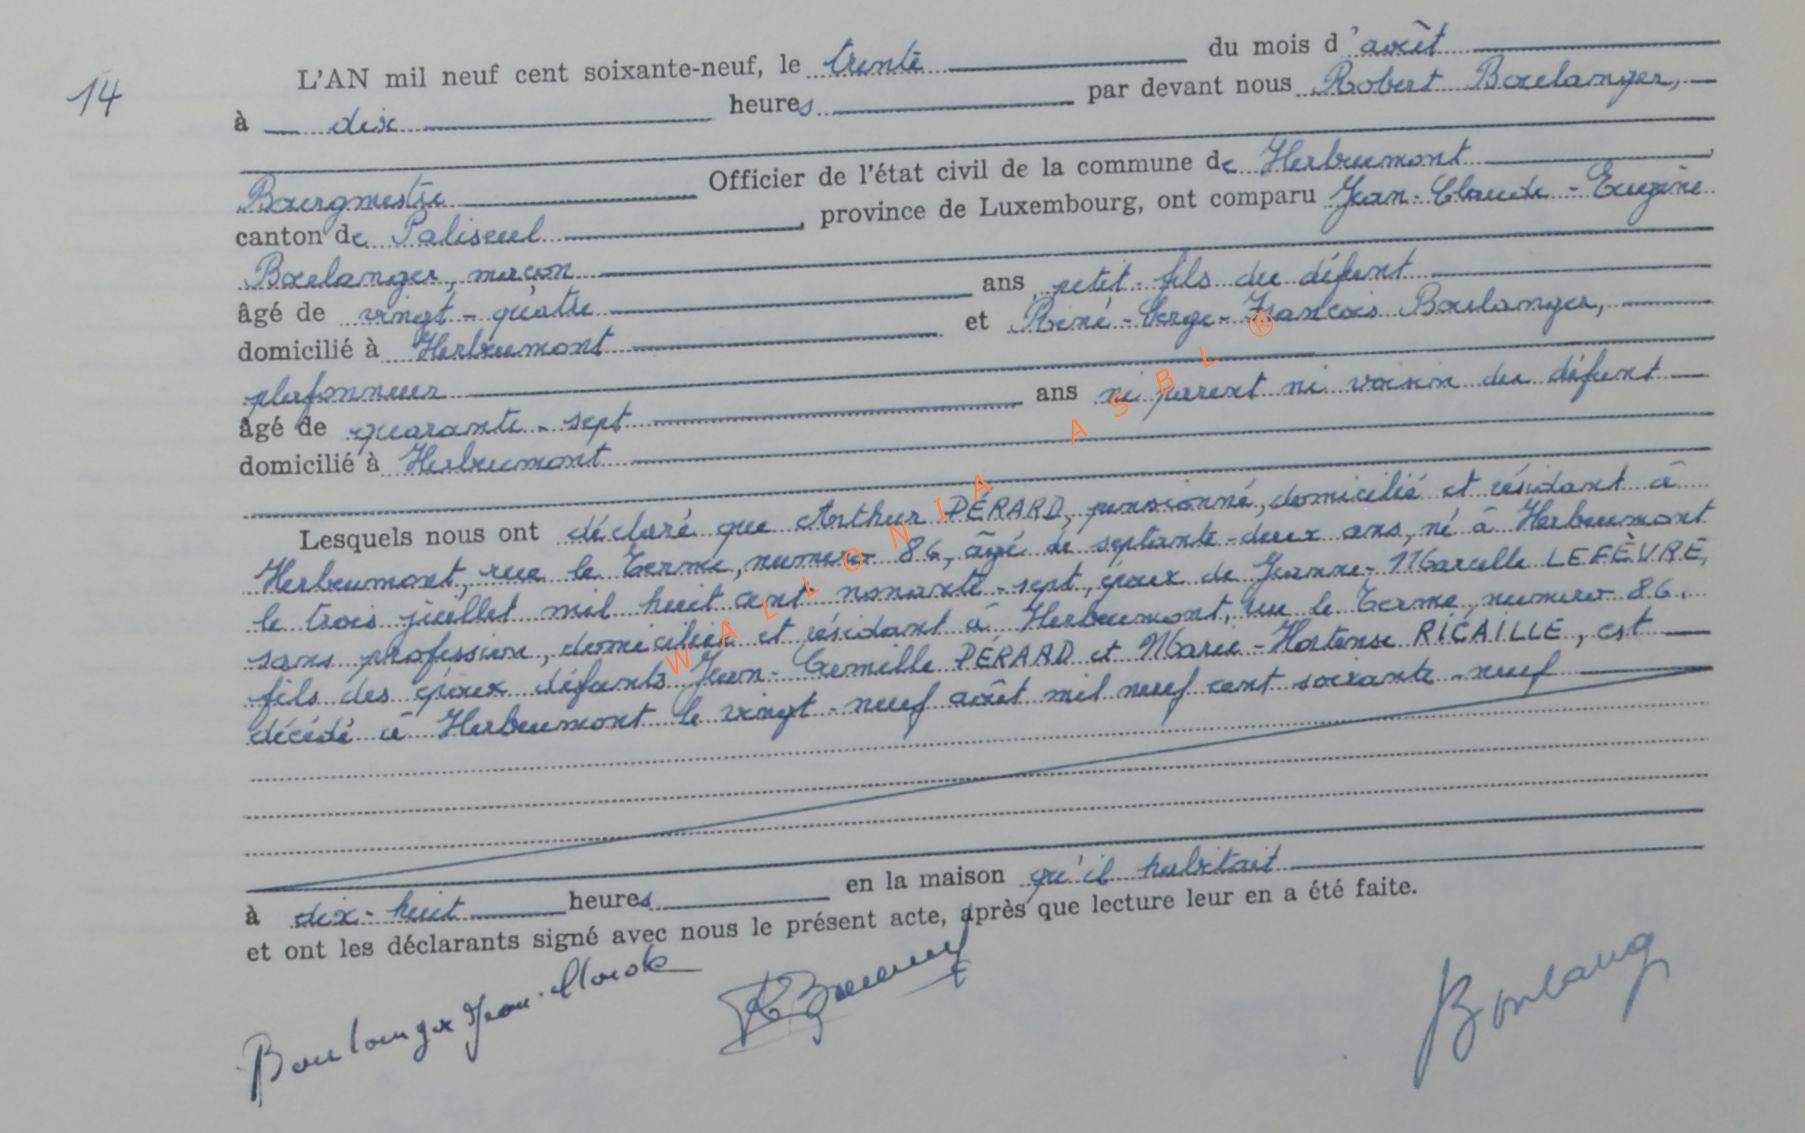 14
L'AN mil neuf cent soixante-neuf, le trente du mois d'août
à dix heures par devant nous Robert Boulanger,
Bourgmestre Officier de l'état civil de la commune de Herbeumont
canton de Paliseul, province de Luxembourg, ont comparu Jean-Claude-Eugène
Boulanger, maçon
âgé de vingt-quatre ans petit-fils du défunt
domicilié à Herbeumont et René-Serge-François Boulanger,
plafonneur
âgé de quarante-sept ans ni parent ni voisin du défunt
domicilié à Herbeumont
Lesquels nous ont déclaré que Arthur PÉRARD, pensionné, domicilié et résidant à
Herbeumont, rue le Terme, numéro 86, âgé de septante-deux ans, né à Herbeumont
le trois juillet mil huit cent nonante-sept, époux de Jeanne-Marcelle LEFÈVRE,
sans profession, domiciliée et résidant à Herbeumont, rue le Terme, numéro 86,
fils des époux défunts Jean-Camille PÉRARD et Marie-Hortense RICAILLE, est
décédé à Herbeumont le vingt-neuf août mil neuf cent soixante-neuf
à dix-huit heures en la maison qu'il habitait
et ont les déclarants signé avec nous le présent acte, après que lecture leur en a été faite.
Boulanger Jean-Claude
WALLONIA ASBL ®